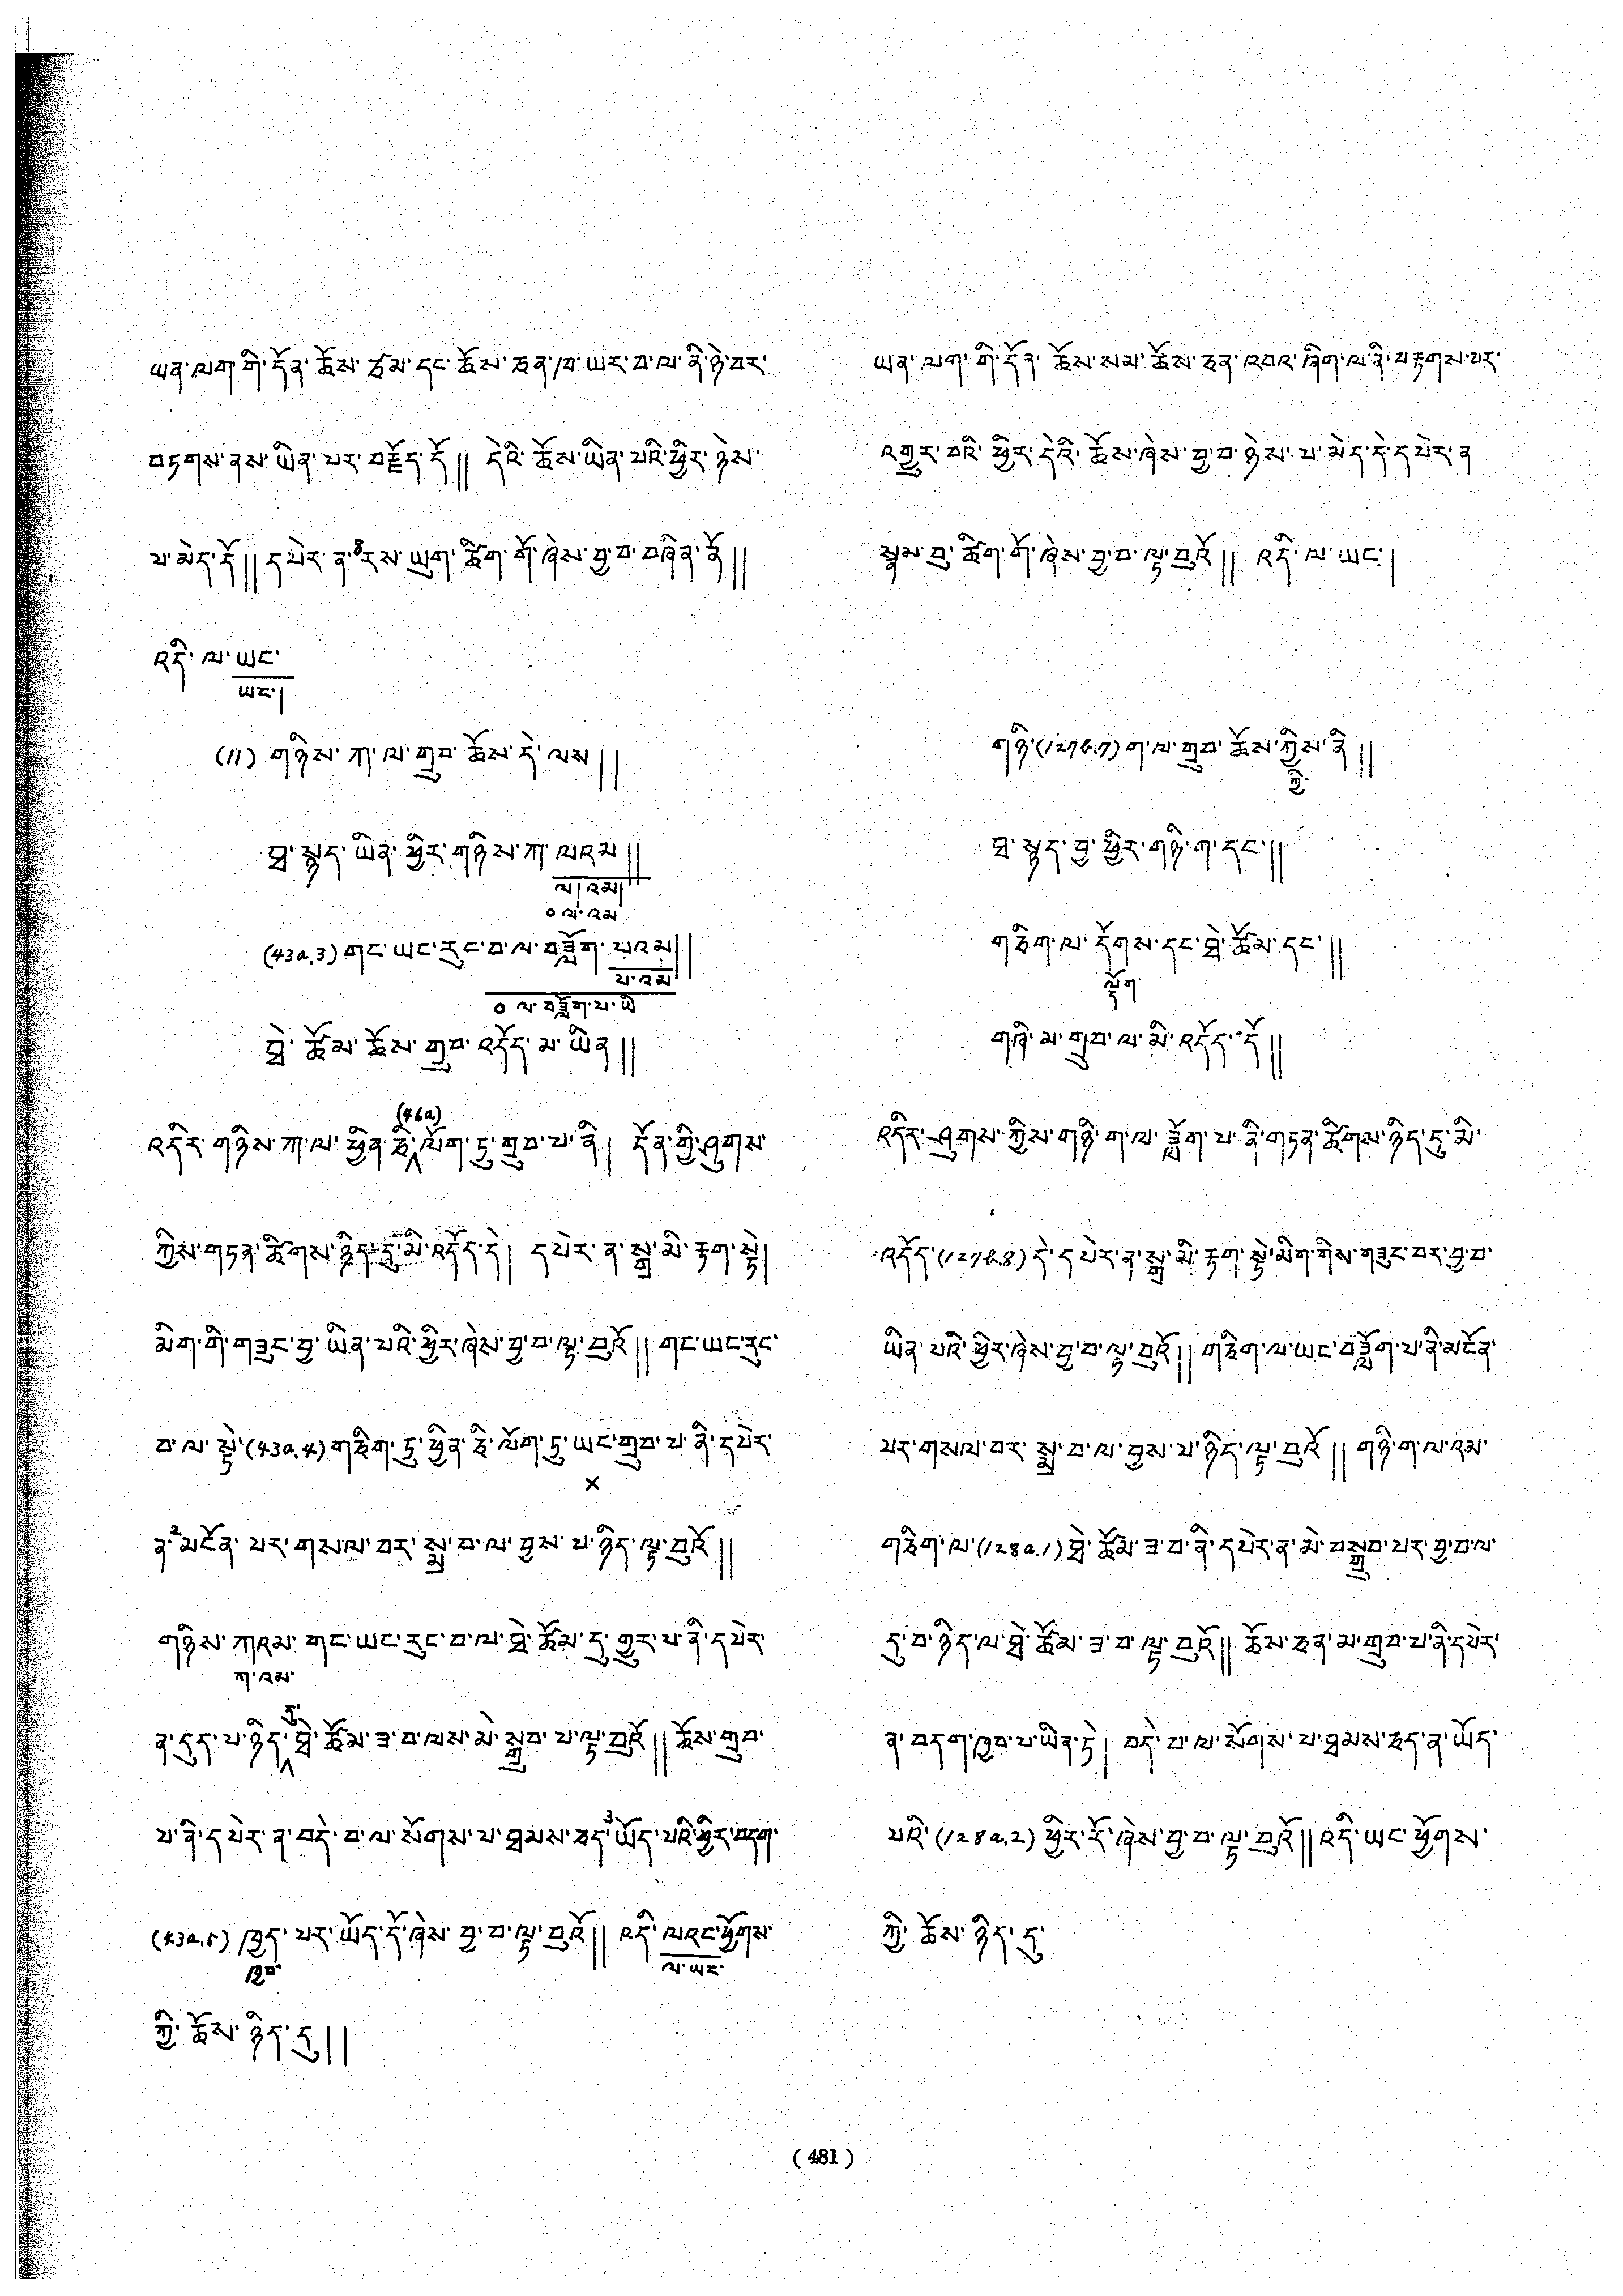 ཡན་ལག་གི་དོན་ཆོས་ཙམ་དང་ཆོས་ཅན་ཁ་ཡར་བ་ལ་ནི་ཉེ་བར་
བཏགས་ནས་ཡིན་པར་བརྗོད་དོ།། དེའི་ཆོས་ཡིན་པའི་ཕྱིར་ཉེས་
པ་མེད་དོ།། དཔེར་ན་རས་ཡུག་ཚིག་གོ་ཞེས་བྱ་བ་བཞིན་ནོ།།
འདི་ལ་ཡང་
ཡང་།
(11) གཉིས་ཀ་ལ་གྲུབ་ཆོས་དེ་ལས།།
ཐ་སྙད་ཡིན་ཕྱིར་གཉིས་ཀ་ལའམ།།
ལ།འམ།
༠ ལ་འམ
(43a,3) གང་ཡང་རུང་བ་ལ་བཟློག་པའམ།།
པ་འམ
༠ ལ་བཟློག་པ་ཡི
ཐེ་ཚོམ་ཆོས་གྲུབ་འདོད་མ་ཡིན།།
(46a)
འདིར་གཉིས་ཀ་ལ་ཕྱིན་ཅི་ལོག་ཏུ་གྲུབ་པ་ནི། དོན་གྱི་ཤུགས་
ཀྱིས་གཏན་ཚིགས་ཉིད་དུ་མི་འདོད་དེ། དཔེར་ན་སྒྲ་མི་རྟག་སྟེ།
མིག་གི་གཟུང་བྱ་ཡིན་པའི་ཕྱིར་ཞེས་བྱ་བ་ལྟ་བུའོ།། གང་ཡང་རུང་
བ་ལ་སྟེ་(43a,4) གཅིག་ཏུ་ཕྱིན་ཅི་ལོག་ཏུ་ཡང་གྲུབ་པ་ནི་དཔེར་
×
ན་2མངོན་པར་གསལ་བར་སྨྲ་བ་ལ་བྱས་པ་ཉིད་ལྟ་བུའོ།།
གཉིས་ཀའམ་གང་ཡང་རུང་བ་ལ་ཐེ་ཚོམ་དུ་གྱུར་པ་ནི་དཔེར་
ཀ་འམ་
ན་དུད་པ་ཉིད་ཐེ་ཚོམ་ཟ་བ་ལས་མེ་སྒྲུབ་པ་ལྟ་བུའོ།། ཆོས་གྲུབ་
པ་ནི་དཔེར་ན་བདེ་བ་ལ་སོགས་པ་ཐམས་ཅད་3ཡོད་པའི་ཕྱིར་བདག་
(43a,5) ཁྱད་པར་ཡོད་དོ་ཞེས་བྱ་བ་ལྟ་བུའོ།། འདི་ལའང་ཕྱོགས་
ཁྱབ་ ལ་ཡང་
ཀྱི་ཆོས་ཉིད་དུ།།
ཡན་ལག་གི་དོན་ཆོས་སམ་ཆོས་ཅན་འབའ་ཞིག་ལ་ནི་བརྟགས་པར་
འགྱུར་བའི་ཕྱིར་དེའི་ཆོས་ཞེས་བྱ་བ་ཉེས་པ་མེད་དེ་དཔེར་ན
སྣམ་བུ་ཚིག་གོ་ཞེས་བྱ་བ་ལྟ་བུའོ།། འདི་ལ་ཡང་།
གཉི་(127b,7) ག་ལ་གྲུབ་ཆོས་ཀྱིས་ནི།།
ཀྱི་
ཐ་སྙད་བྱ་ཕྱིར་གཉི་ག་དང་།།
གཅིག་ལ་དོགས་དང་ཐེ་ཚོམ་དང་།།
ལྡོག་
གཞི་མ་གྲུབ་ལ་མི་འདོད་དོ།།
འདིར་ཤུགས་ཀྱིས་གཉི་ག་ལ་ཟློག་པ་ནི་གཏན་ཚིགས་ཉིད་དུ་མི་
འདོད་(127b,8) དེ་དཔེར་ན་སྒྲ་མི་རྟག་སྟེ་མིག་གིས་གཟུང་བར་བྱ་བ་
ཡིན་པའི་ཕྱིར་ཞེས་བྱ་བ་ལྟ་བུའོ།། གཅིག་ལ་ཡང་བཟློག་པ་ནི་མངོན་
པར་གསལ་བར་སྨྲ་བ་ལ་བྱས་པ་ཉིད་ལྟ་བུའོ།། གཉི་ག་ལ་འམ་
གཅིག་ལ་(128a,1) ཐེ་ཚོམ་ཟ་བ་ནི་དཔེར་ན་མེ་བསྒྲུབ་པར་བྱ་བ་ལ་
དུ་བ་ཉིད་ལ་ཐེ་ཚོམ་ཟ་བ་ལྟ་བུའོ།། ཆོས་ཅན་མ་གྲུབ་པ་ནི་དཔེར་
ན་བདག་ཁྱབ་པ་ཡིན་ཏེ། བདེ་བ་ལ་སོགས་པ་ཐམས་ཅད་ན་ཡོད་
པའི་(128a,2) ཕྱིར་རོ་ཞེས་བྱ་བ་ལྟ་བུའོ།། འདི་ཡང་ཕྱོགས་
ཀྱི་ཆོས་ཉིད་དུ་
( 481 )